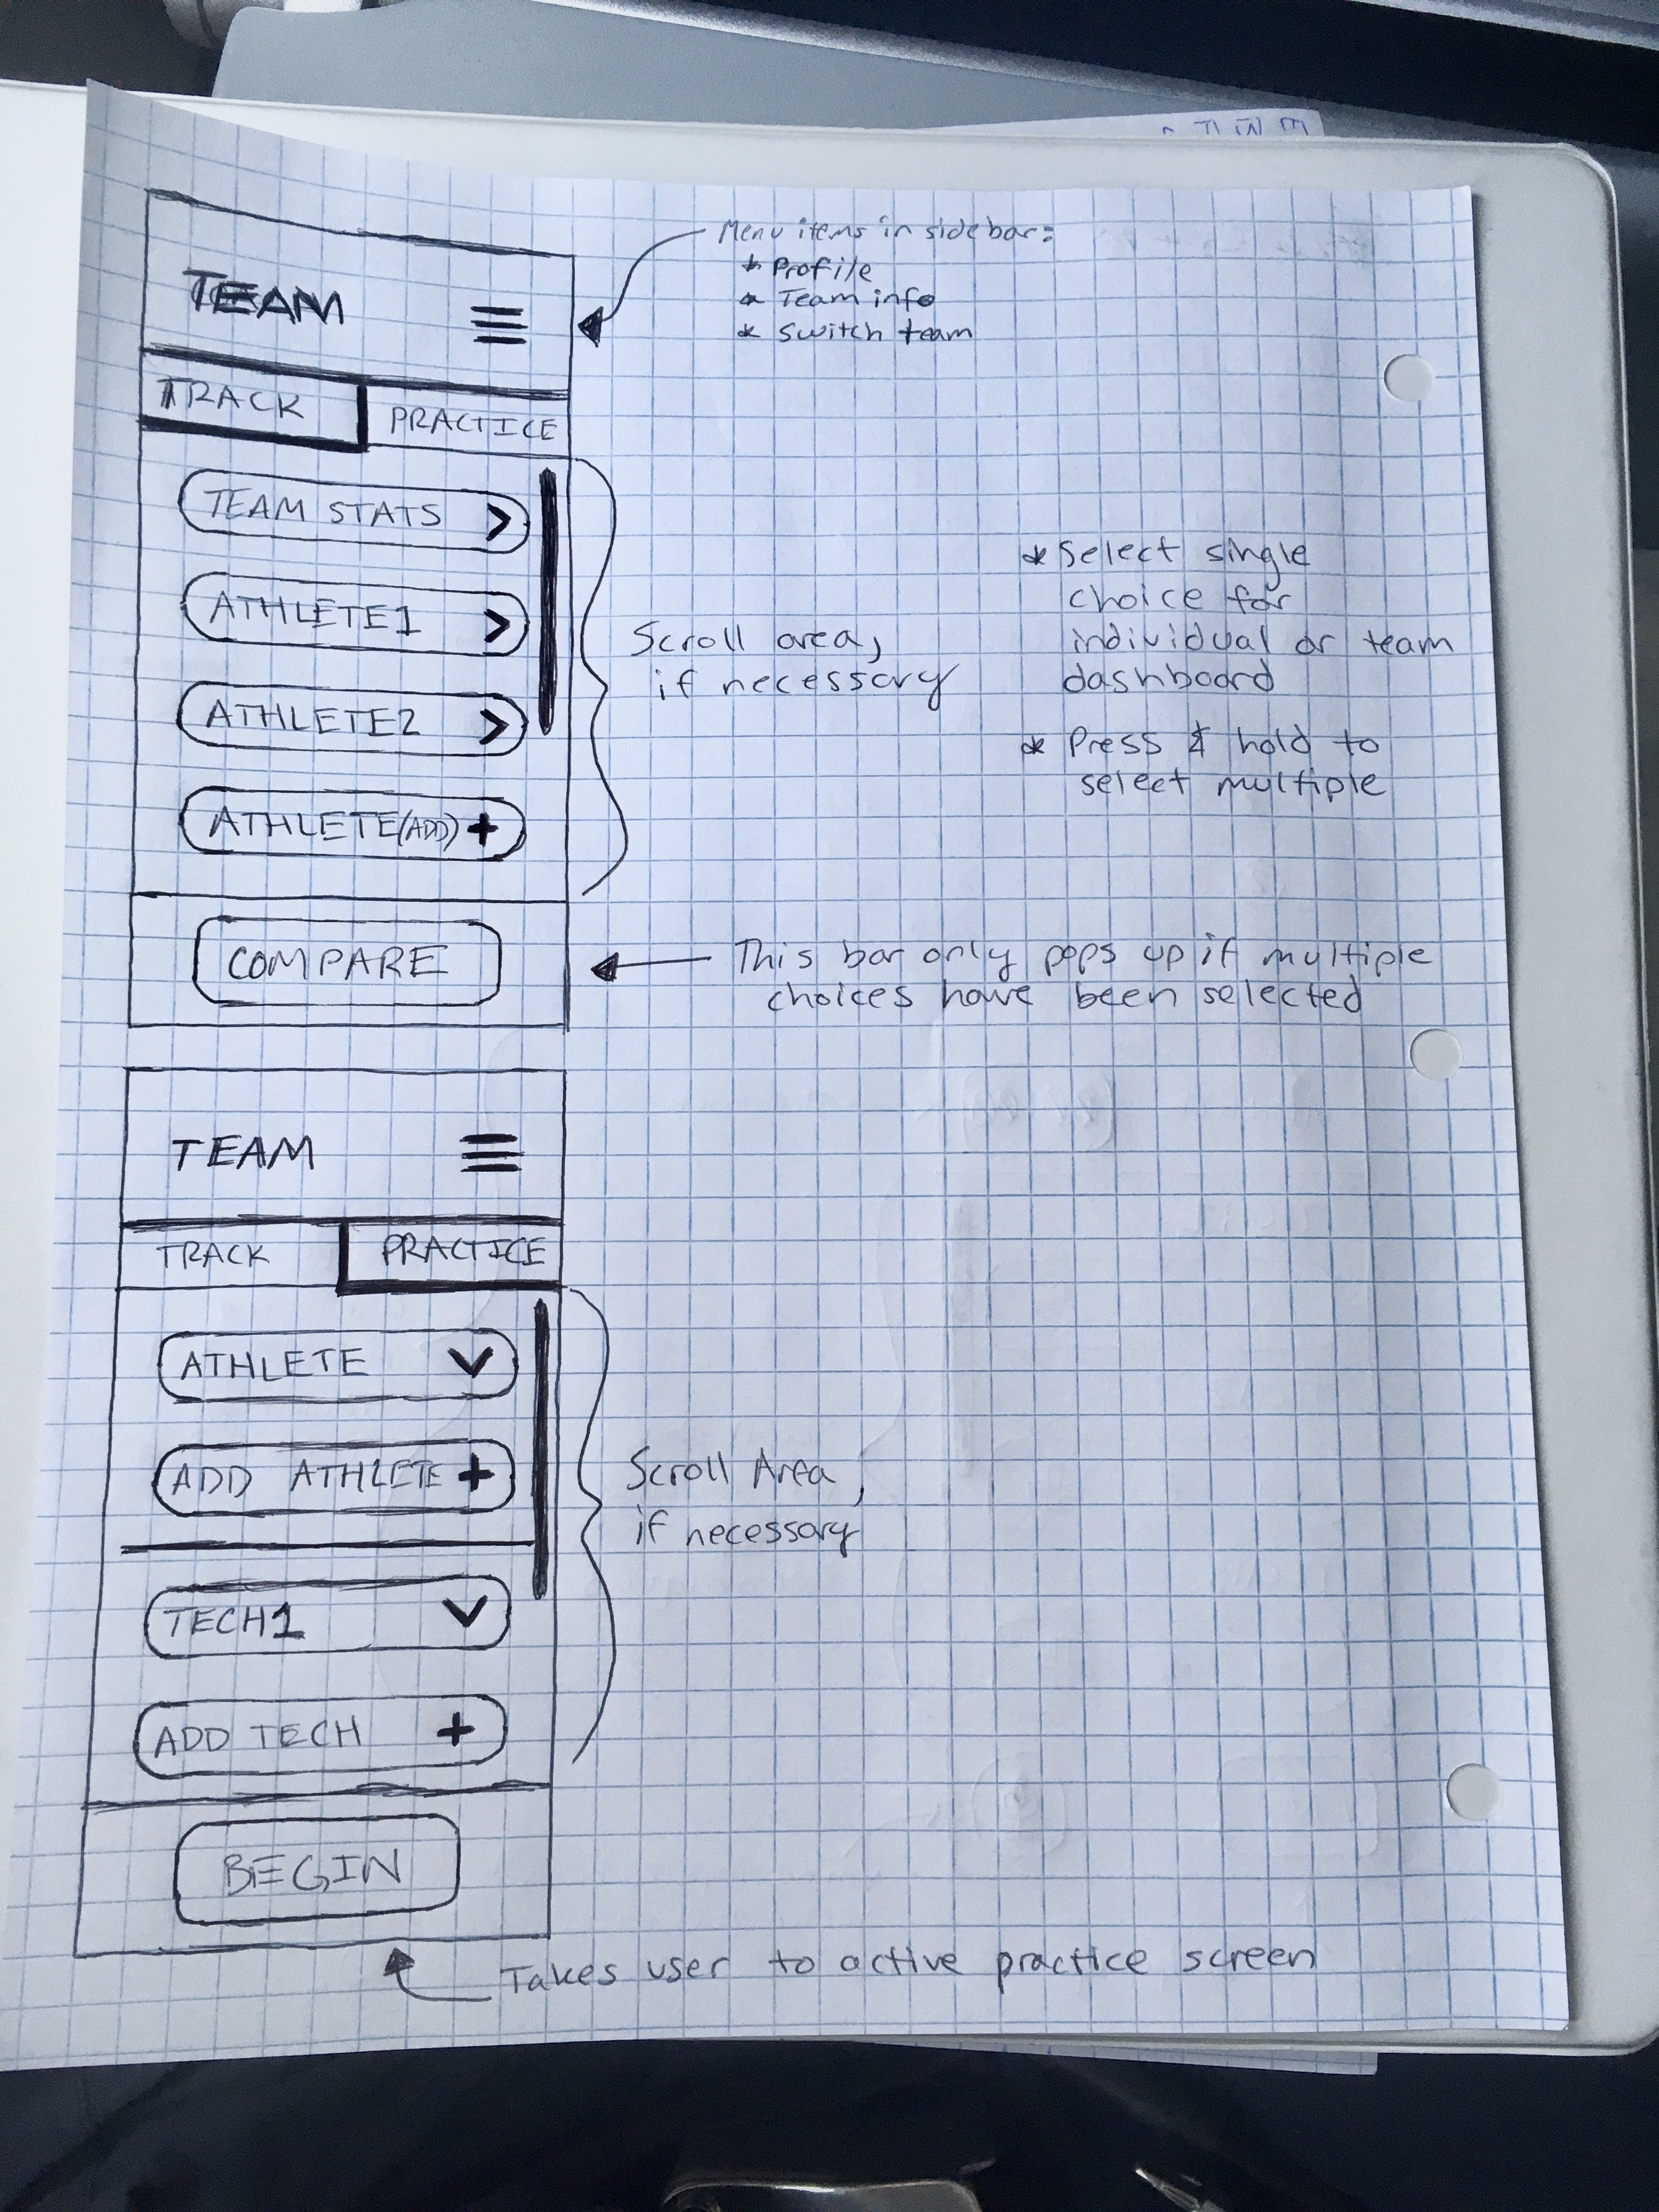 Menu items in sidebar:
* Profile
* Team info
* Switch team
TEAM
TRACK
PRACTICE
TEAM STATS >
ATHLETE1 >
ATHLETE2 >
ATHLETE(ADD) +
Scroll area,
if necessary
* Select single
choice for
individual or team
dashboard
* Press & hold to
select multiple
COMPARE
This bar only pops up if multiple
choices have been selected
TEAM
TRACK
PRACTICE
ATHLETE
ADD ATHLETE +
TECH1
ADD TECH +
Scroll Area,
if necessary
BEGIN
Takes user to active practice screen